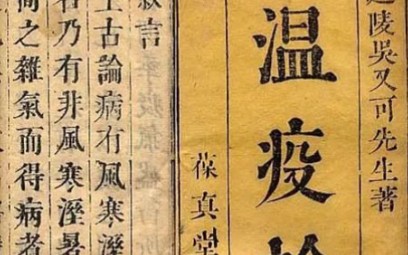 陵吳又可先生著
温疫
葆真堂
言
上古論病有風寒溼
乃有非風寒溼暑
之雜氣而得病者